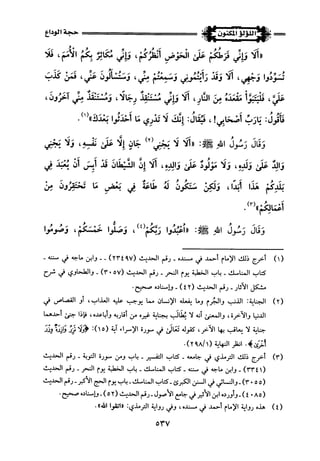 اللؤلؤ المكنون
حجة الوداع
«أَلَا وَإِنِّي فَرَطُكُمْ عَلَى الْحَوْضِ أَنْظُرُكُمْ، وَإِنِّي مُكَاثِرٌ بِكُمُ الْأُمَمَ، فَلَا
تُسَوِّدُوا وَجْهِي، أَلَا وَقَدْ رَأَيْتُمُونِي وَسَمِعْتُمْ مِنِّي، وَسَتُسْأَلُونَ عَنِّي، فَمَنْ كَذَبَ
عَلَيَّ، فَلْيَتَبَوَّأْ مَقْعَدَهُ مِنَ النَّارِ، أَلَا وَإِنِّي مُسْتَنْقِذٌ رِجَالًا، وَمُسْتَنْقَذٌ مِنِّي آخَرُونَ،
فَأَقُولُ: يَارَبِّ أَصْحَابِي! ، فَيُقَالُ: إِنَّكَ لَا تَدْرِي مَا أَحْدَثُوا بَعْدَكَ»(١).
وَقَالَ رَسُولُ اللهِ ﷺ: «أَلَا لَا يَجْنِي(٢) جَانٍ إِلَّا عَلَى نَفْسِهِ، وَلَا يَجْنِي
وَالِدٌ عَلَى وَلَدِهِ، وَلَا مَوْلُودٌ عَلَى وَالِدِهِ، أَلَا إِنَّ الشَّيْطَانَ قَدْ أَيِسَ أَنْ يُعْبَدَ فِي
بَلَدِكُمْ هَذَا أَبَدًا، وَلَكِنْ سَتَكُونُ لَهُ طَاعَةٌ فِي بَعْضِ مَا تَحْتَقِرُونَ مِنْ
أَعْمَالِكُمْ»(٣).
وَقَالَ رَسُولُ اللهِ ﷺ: «اعْبُدُوا رَبَّكُمْ(٤)، وَصَلُّوا خَمْسَكُمْ، وَصُومُوا
(١) أخرج ذلك الإمام أحمد في مسنده ـ رقم الحديث (٢٣٤٩٧) ـ وابن ماجه في سننه ـ
كتاب المناسك ـ باب الخطبة يوم النحر ـ رقم الحديث (٣٠٥٧) ـ والطحاوي في شرح
مشكل الآثار ـ رقم الحديث (٤٢) ـ وإسناده صحيح.
(٢) الجناية: الذنب والجُرم وما يفعله الإنسان مما يوجب عليه العذاب، أو القصاص في
الدنيا والآخرة، والمعنى أنه لا يُطالَب بجناية غيره من أقاربه وأباعده، فإذا جنى أحدهما
جناية لا يعاقب بها الآخر، كقوله تَعَالَى في سورة الإسراء آية (١٥): ﴿وَلَا تَزِرُ وَازِرَةٌ وِزْرَ
أُخْرَى﴾. انظر النهاية (٢٩٨/١).
(٣) أخرج ذلك الترمذي في جامعه ـ كتاب التفسير ـ باب ومن سورة التوبة ـ رقم الحديث
(٣٣٤١) ـ وابن ماجه في سننه ـ كتاب المناسك ـ باب الخطبة يوم النحر ـ رقم الحديث
(٣٠٥٥) ـ والنسائي في السنن الكبرى ـ كتاب المناسك ـ باب يوم الحج الأكبر ـ رقم الحديث
(٤٠٨٥) ـ وأورده ابن الأثير في جامع الأصول ـ رقم الحديث (٥٢) ـ وإسناده صحيح.
(٤) هذه رواية الإمام أحمد في مسنده، وفي رواية الترمذي: «اتقوا الله».
٥٣٧